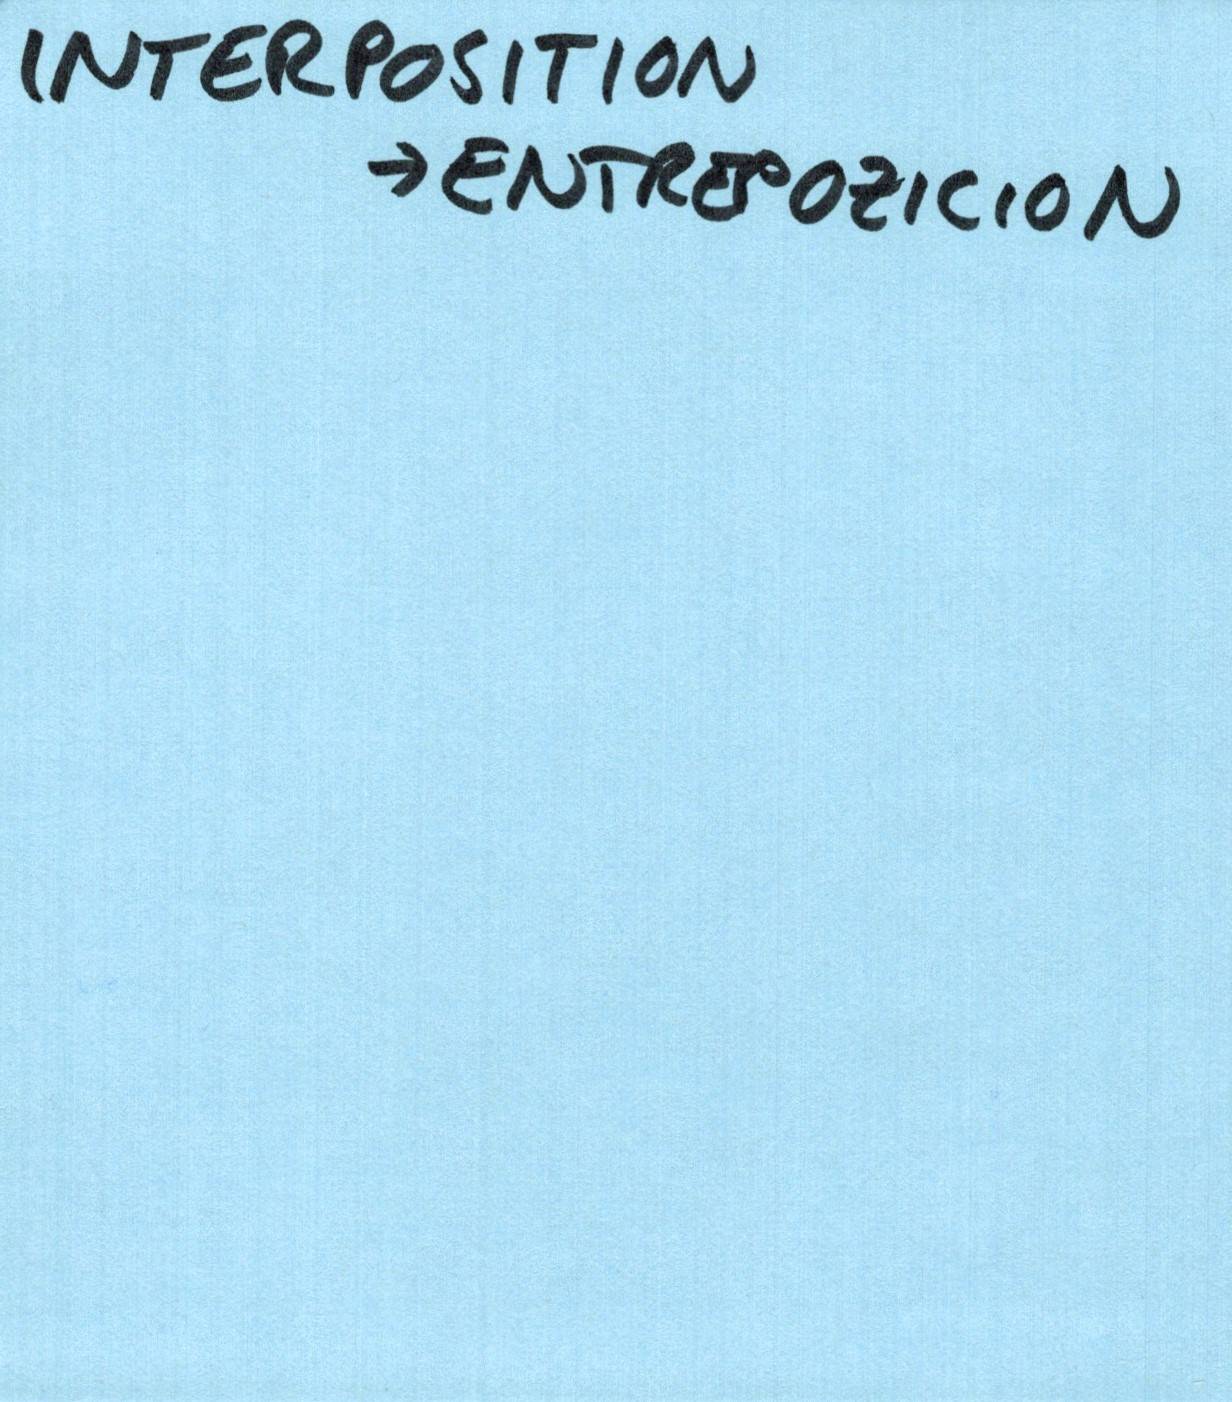 INTERPOSITION
→ENTREPOZICION